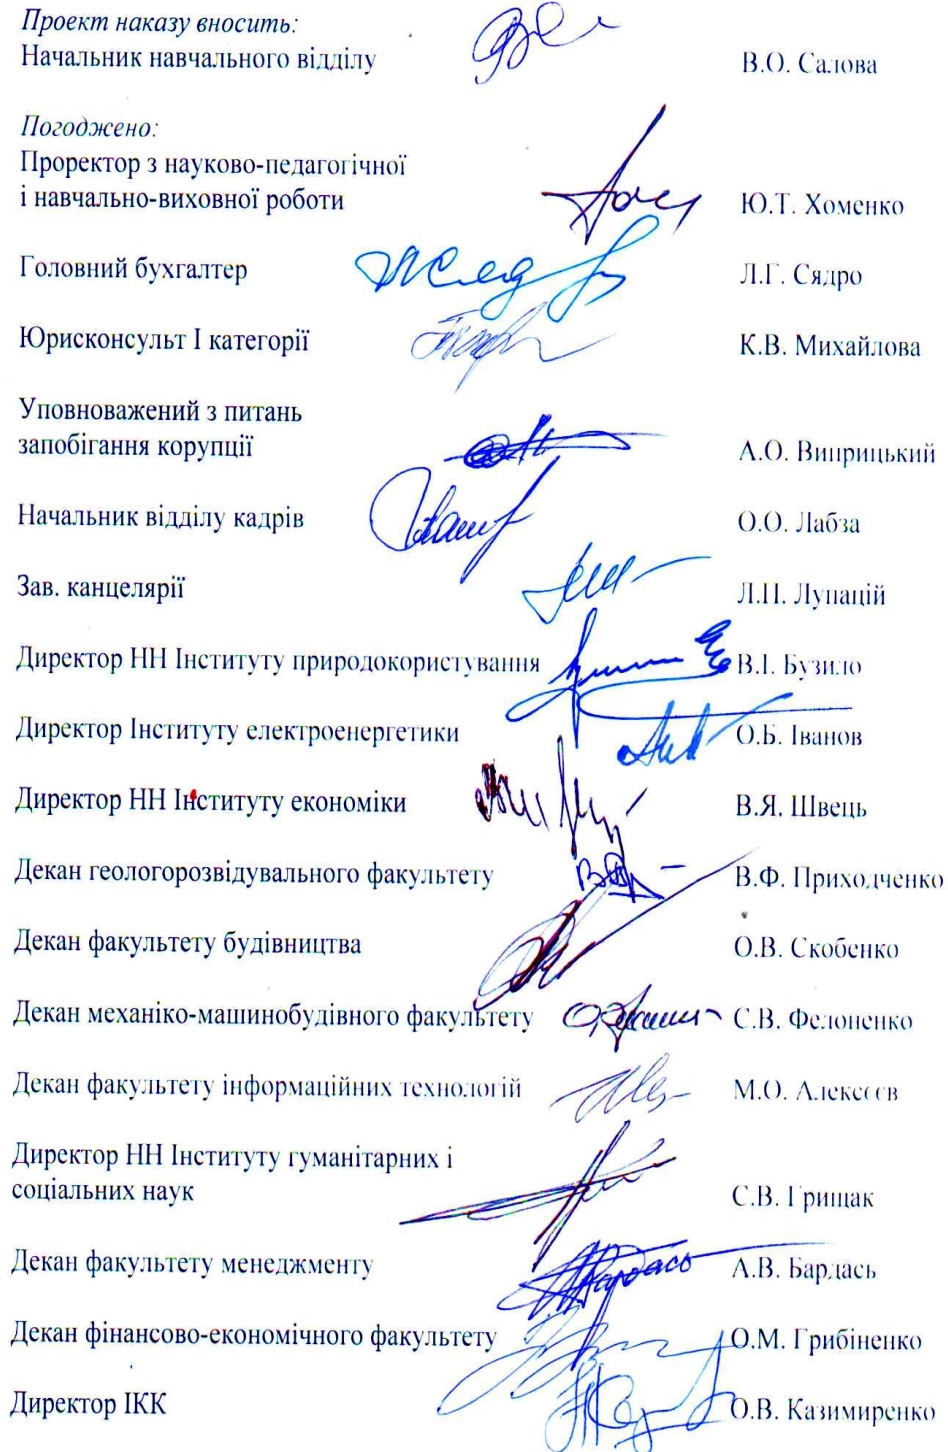 Проект наказу вносить:
Начальник навчального відділу В.О. Салова
Погоджено:
Проректор з науково-педагогічної
і навчально-виховної роботи Ю.Т. Хоменко
Головний бухгалтер Л.Г. Сядро
Юрисконсульт І категорії К.В. Михайлова
Уповноважений з питань
запобігання корупції А.О. Виприцький
Начальник відділу кадрів О.О. Лабза
Зав. канцелярії Л.П. Лупацій
Директор НН Інституту природокористування В.І. Бузило
Директор Інституту електроенергетики О.Б. Іванов
Директор НН Інституту економіки В.Я. Швець
Декан геологорозвідувального факультету В.Ф. Приходченко
Декан факультету будівництва О.В. Скобенко
Декан механіко-машинобудівного факультету С.В. Фелоненко
Декан факультету інформаційних технологій М.О. Алексєєв
Директор НН Інституту гуманітарних і
соціальних наук С.В. Грищак
Декан факультету менеджменту А.В. Бардась
Декан фінансово-економічного факультету О.М. Грибіненко
Директор ІКК О.В. Казимиренко